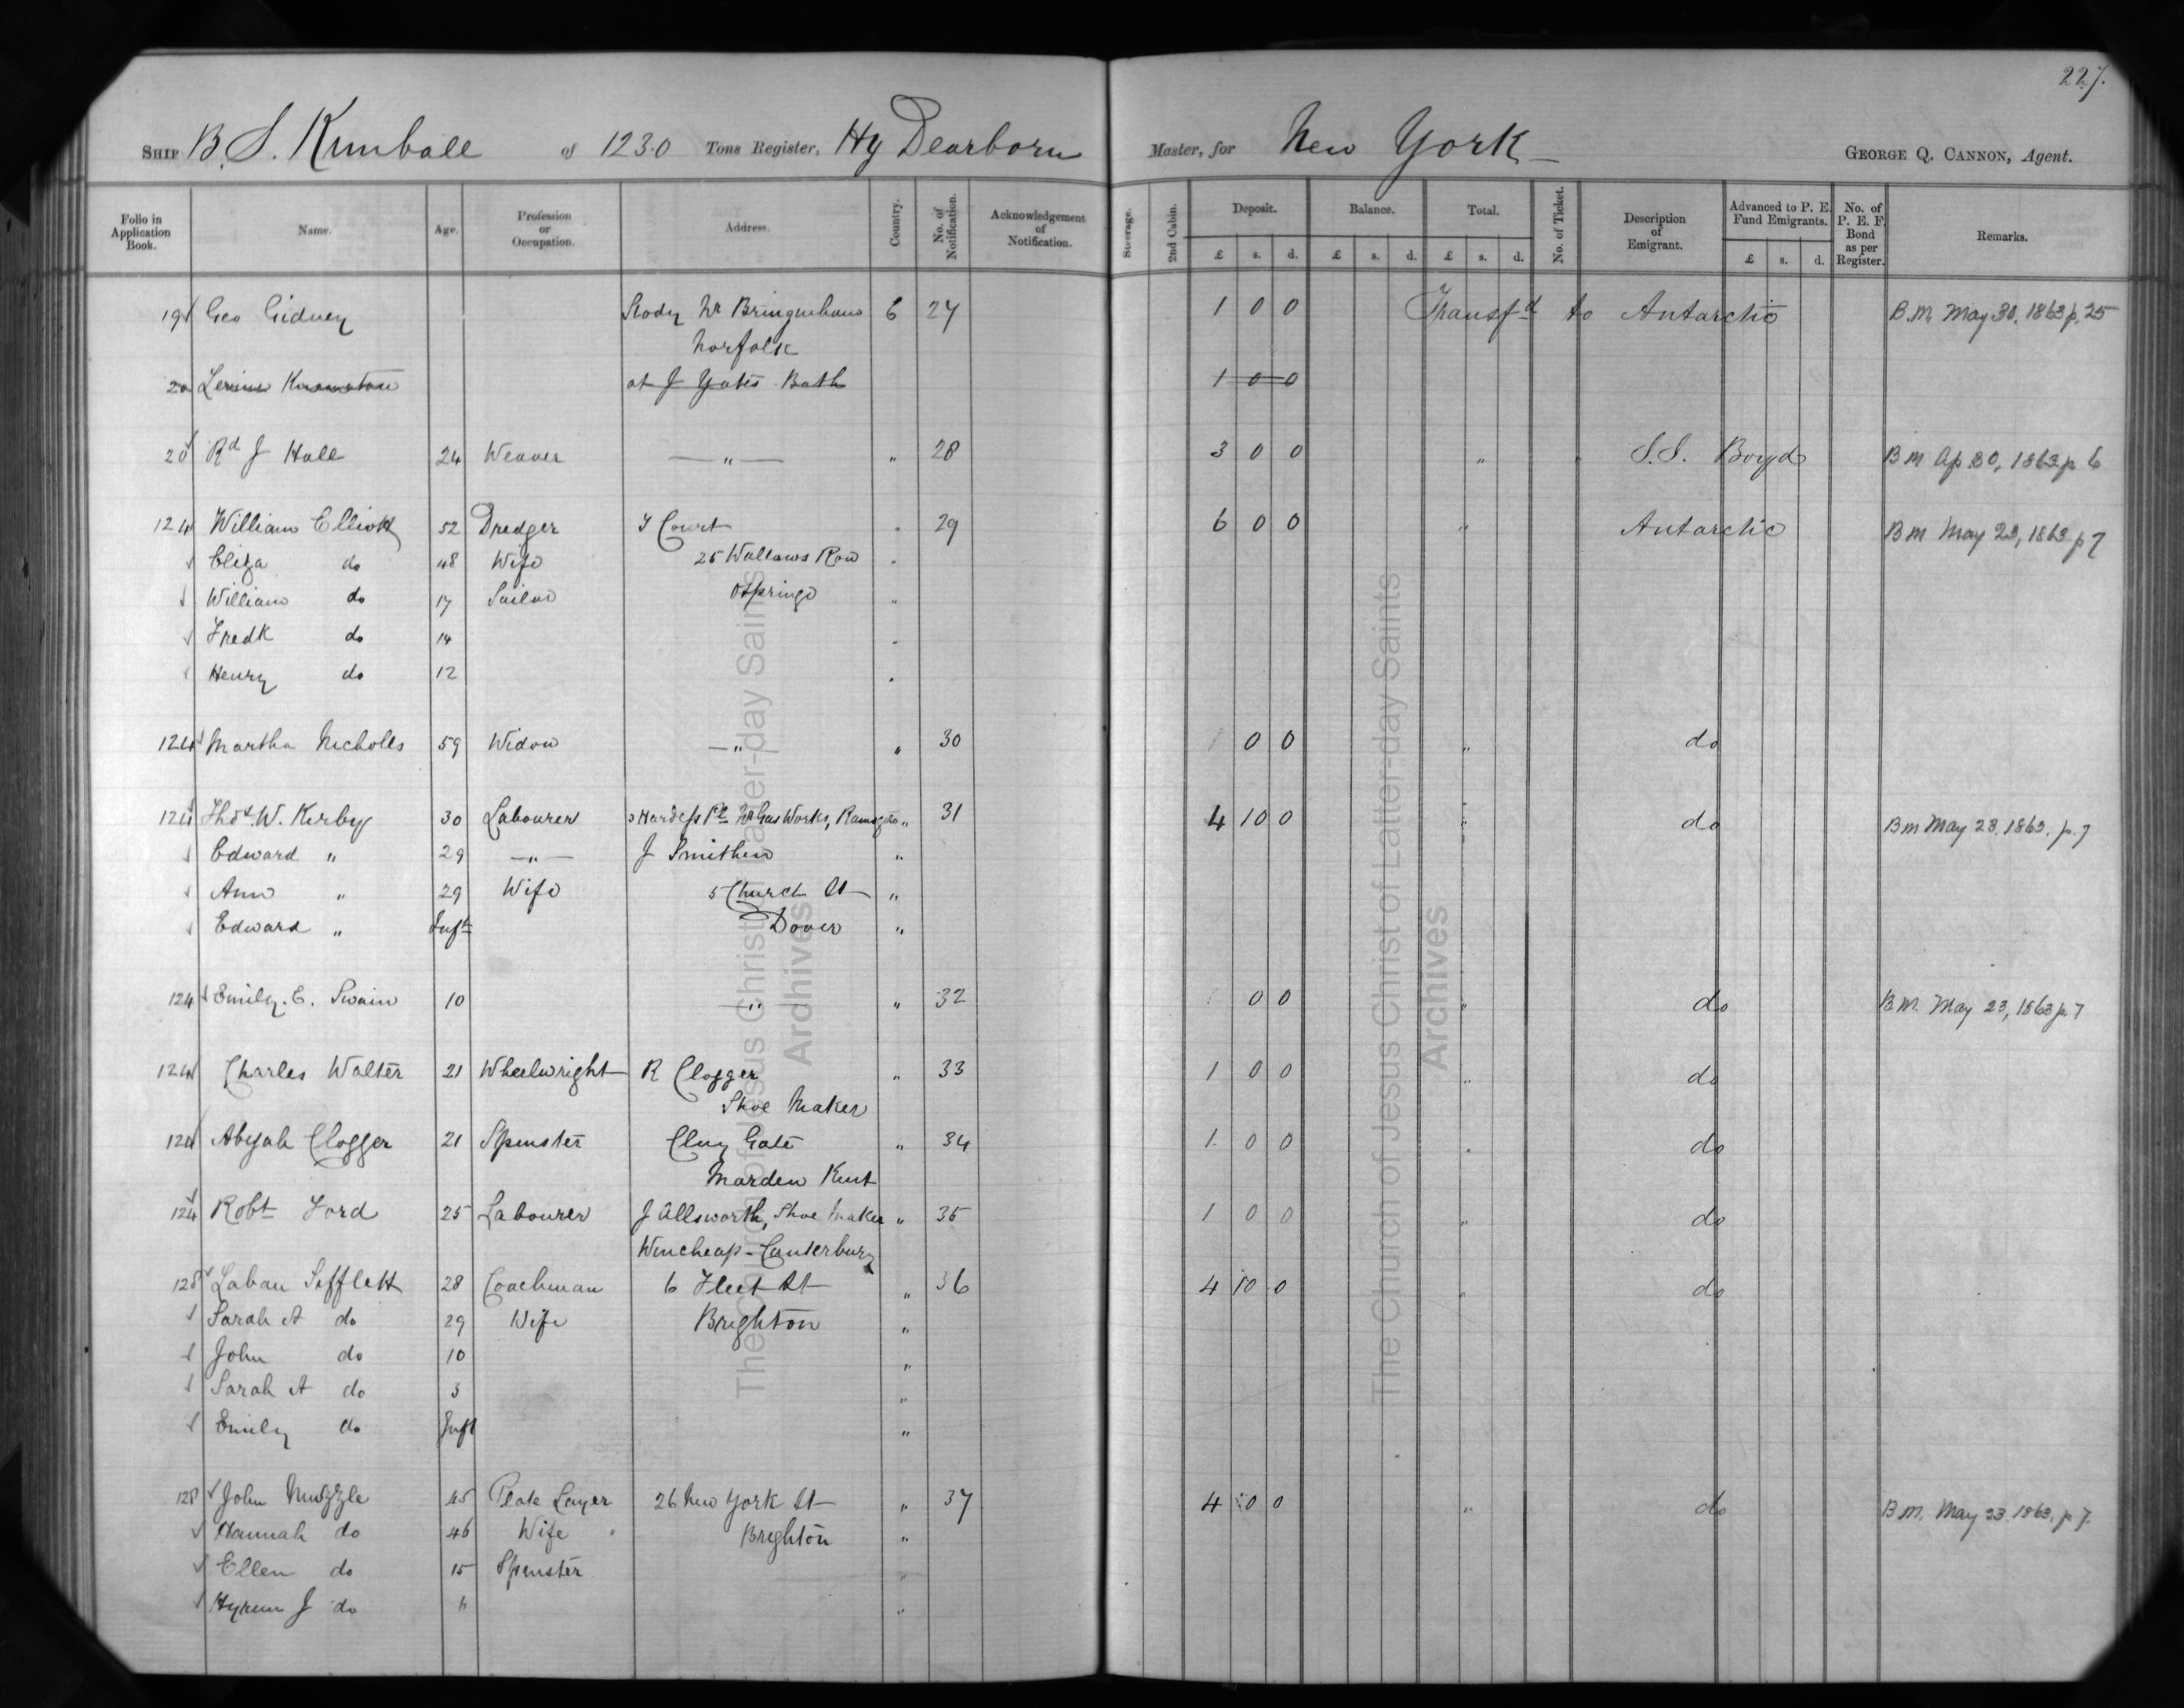 227.
SHIP B. S. Kimball of 1230 Tons Register, Hy Dearborn Master, for New York GEORGE Q. CANNON, Agent.
Folio in Application Book. Name. Age. Profession or Occupation. Address. Country. No. of Notification. Acknowledgement of Notification. Steerage. 2nd Cabin. Deposit. £ s. d. Balance. £ s. d. Total. £ s. d. No. of Ticket. Description of Emigrant. Advanced to P. E. Fund Emigrants. £ s. d. No. of P. E. F. Bond as per Register. Remarks.
19 Geo Gidney Nr 6 27 1 0 0 Transfd to Antarctic B.M. May 30, 1863 p. 25
Norfolk
20 at J Yates Bath 1 0 0
20 Rd J Hall 24 Weaver — " — " 28 3 0 0 " " S.S. Boyd B M Ap 30, 1863 p 6
124 William Elliott 52 Dredger Court " 29 6 0 0 " Antarctic B M May 23, 1863 p 7
Eliza do 48 Wife 25 Row "
William do 17 Sailor Ospringe "
Fredk do 14 "
Henry do 12 "
124 Martha Nicholls 59 Widow — " " 30 0 0 " do
124 Thos. W. Kerby 30 Labourer Nr Gas Works, Ramsgate " 31 4 10 0 " do B M May 23, 1863. p. 7
Edward " 29 — " — J Smithen "
Ann " 29 Wife 5 Church St "
Edward " Inft Dover "
124 Emily. E. Swain 10 — " " 32 0 0 " do B.M. May 23, 1863 p. 7
124 Charles Walter 21 Wheelwright R Clogger " 33 1 0 0 " do
Shoe Maker
124 Abijah Clogger 21 Spinster Clay Gate " 34 1. 0 0 " do
Marden Kent
124 Robt Ford 25 Labourer J Allsworth, Shoe Maker " 35 1 0 0 " do
Wincheap - Canterbury
128 Laban Sifflett 28 Coachman 6 Fleet St " 36 4 10 0 " do
Sarah A do 29 Wife Brighton "
John do 10 "
Sarah A do 3 "
Emily do Inft "
128 John Muzzle 45 Plate Layer 26 New York St " 37 4 10 0 " do B.M. May 23. 1863. p 7.
Hannah do 46 Wife Brighton "
Ellen do 15 Spinster "
Hyrum J do "
The Church of Jesus Christ of Latter-day Saints
Archives
The Church of Jesus Christ of Latter-day Saints
Archives